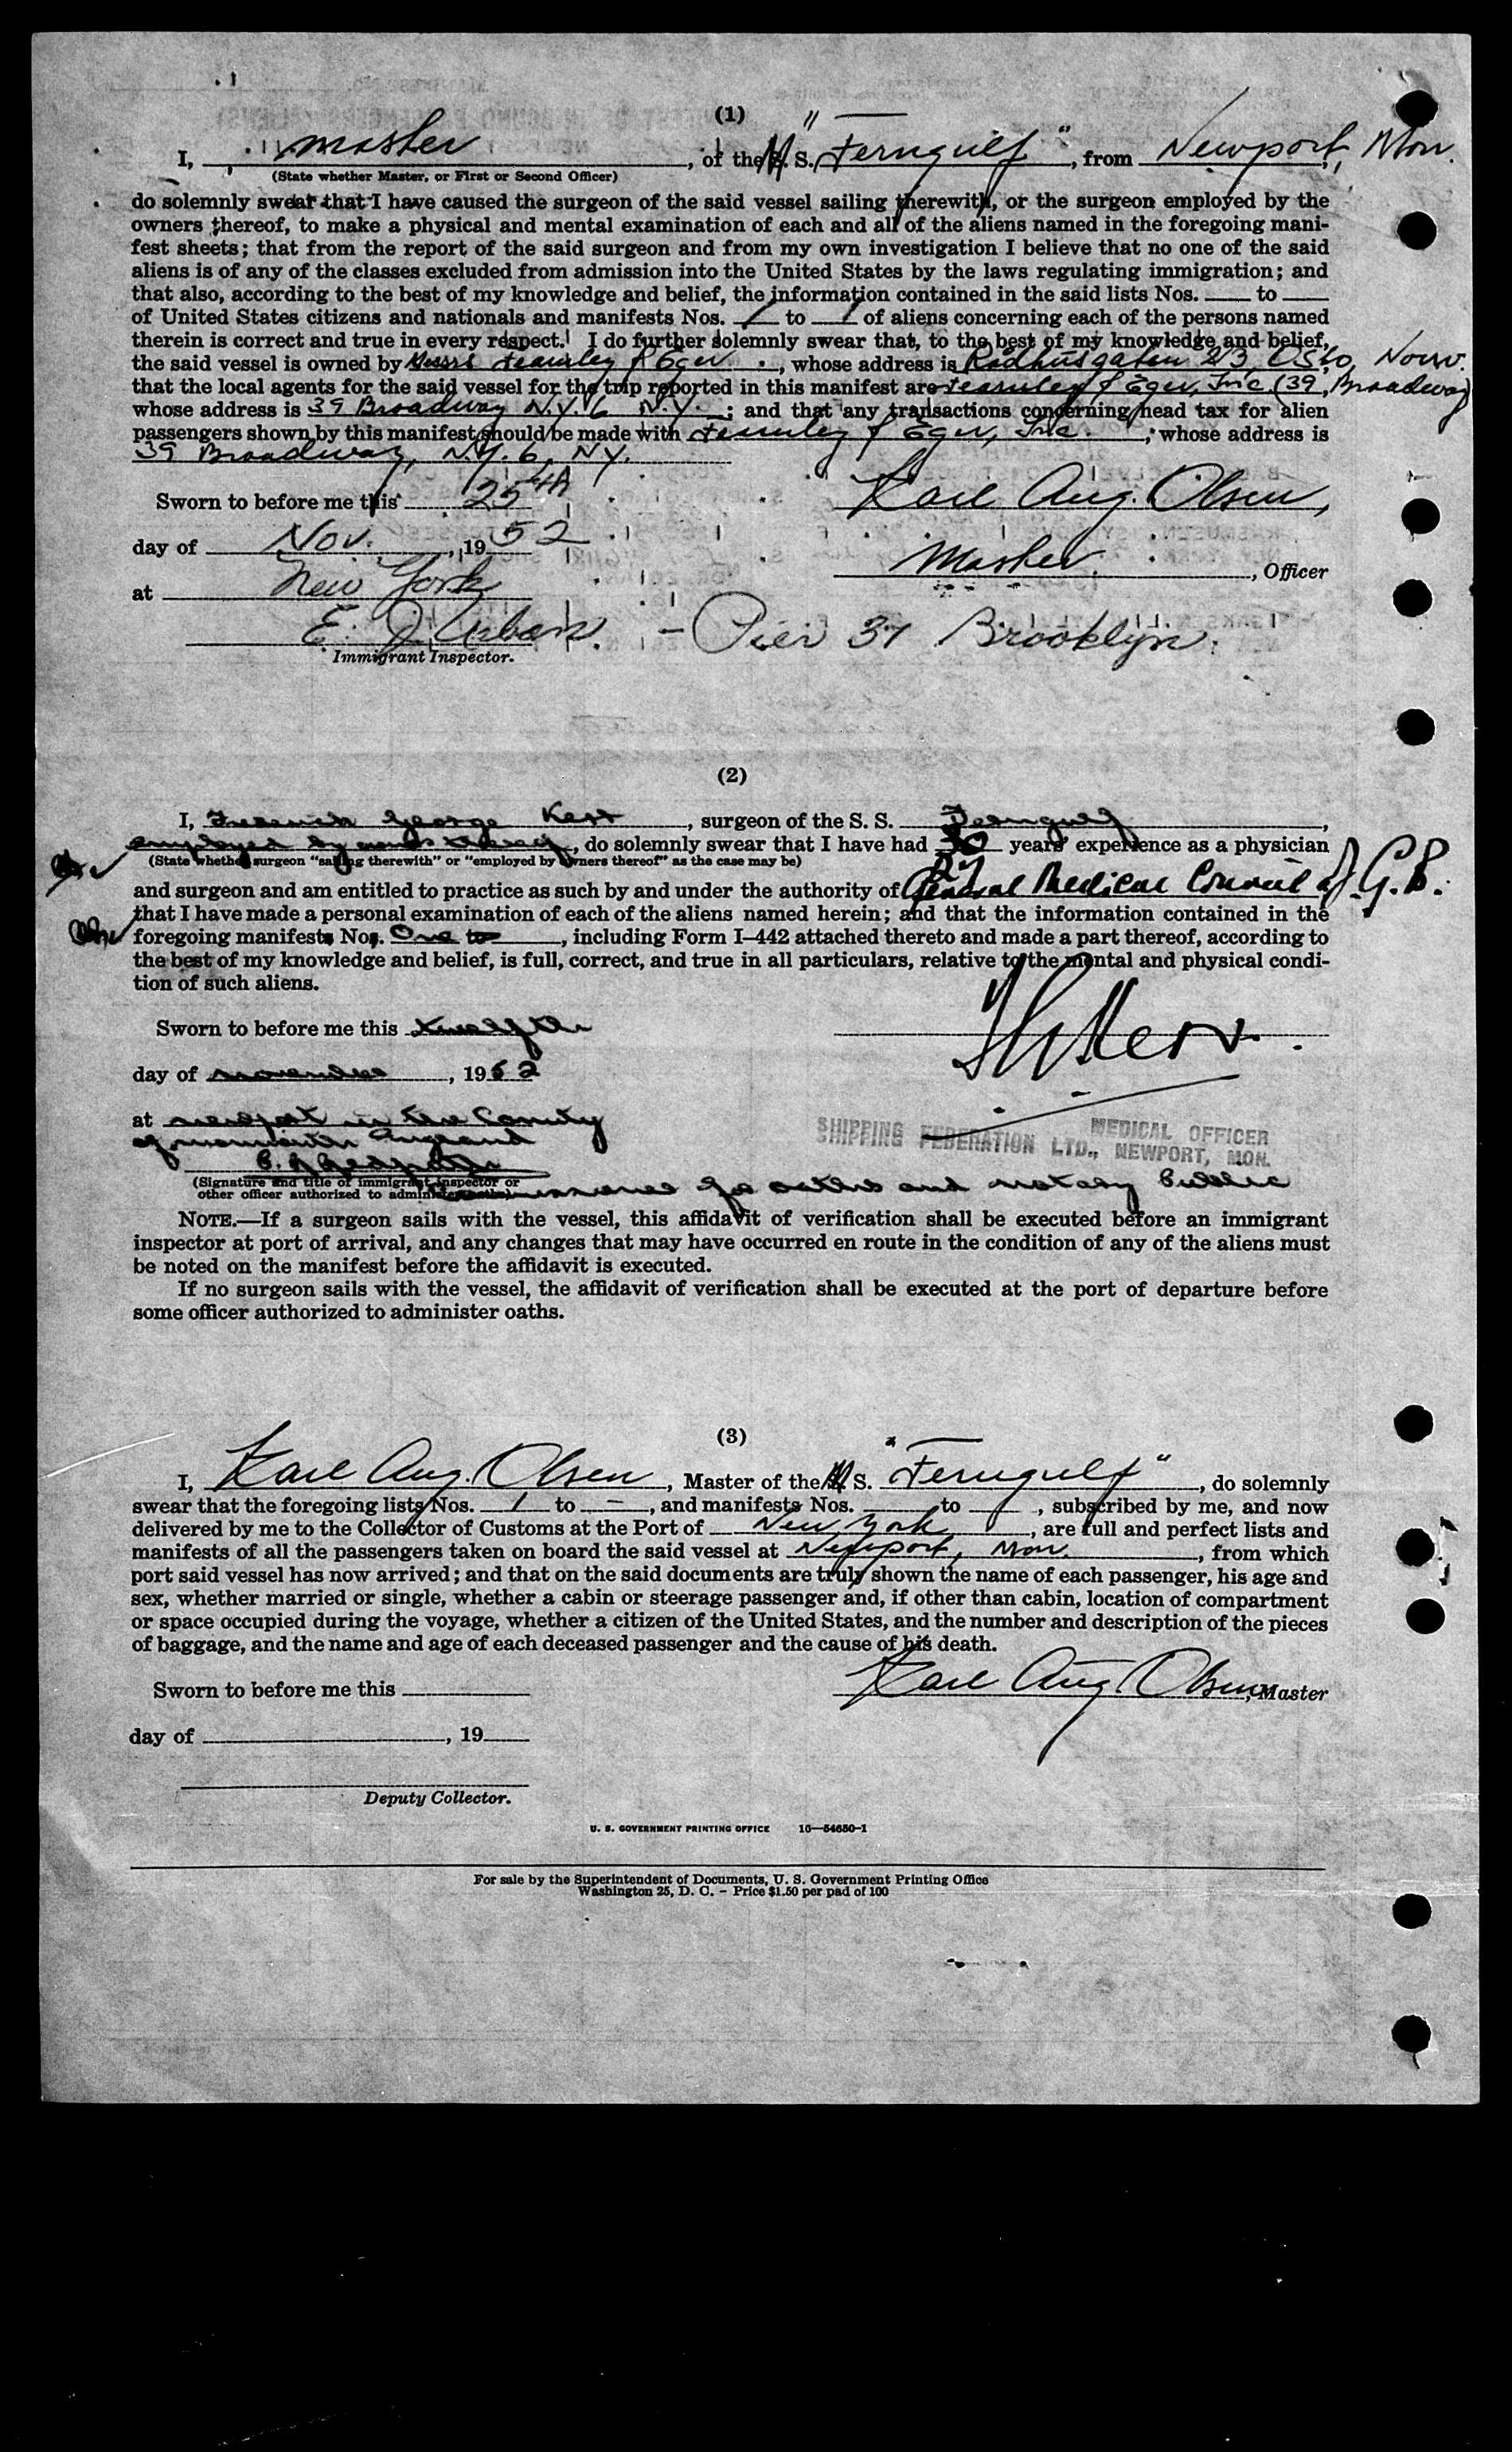 (1)
I, master, of the M. S. "Ferngulf", from Newport, Mon.
(State whether Master, or First or Second Officer)
do solemnly swear that I have caused the surgeon of the said vessel sailing therewith, or the surgeon employed by the
owners thereof, to make a physical and mental examination of each and all of the aliens named in the foregoing mani-
fest sheets; that from the report of the said surgeon and from my own investigation I believe that no one of the said
aliens is of any of the classes excluded from admission into the United States by the laws regulating immigration; and
that also, according to the best of my knowledge and belief, the information contained in the said lists Nos. ___ to ___
of United States citizens and nationals and manifests Nos. 1 to 1 of aliens concerning each of the persons named
therein is correct and true in every respect. I do further solemnly swear that, to the best of my knowledge and belief,
the said vessel is owned by Messrs Fearnley & Eger, whose address is Rådhusgaten 23, Oslo, Norw.
that the local agents for the said vessel for the trip reported in this manifest are Fearnley & Eger, Inc. (39, Broadway)
whose address is 39 Broadway N.Y. 6 N.Y.; and that any transactions concerning head tax for alien
passengers shown by this manifest should be made with Fearnley & Eger, Inc., whose address is
39 Broadway, N.Y. 6, N.Y.
Sworn to before me this 25th Karl Aug. Olsen,
day of Nov., 1952
Master, Officer
at New York
E. J. - Pier 37 Brooklyn.
Immigrant Inspector.
(2)
I, Frederick George Kerr, surgeon of the S. S. Ferngulf,
employed by owners thereof, do solemnly swear that I have had 30 years' experience as a physician
(State whether surgeon "sailing therewith" or "employed by owners thereof" as the case may be)
and surgeon and am entitled to practice as such by and under the authority of General Medical Council of G.B.
that I have made a personal examination of each of the aliens named herein; and that the information contained in the
foregoing manifests Nos. One to ___, including Form I–442 attached thereto and made a part thereof, according to
the best of my knowledge and belief, is full, correct, and true in all particulars, relative to the mental and physical condi-
tion of such aliens.
Sworn to before me this twelfth
Kerr.
day of november, 1952
at newport in the County
of monmouth England
SHIPPING FEDERATION LTD., MEDICAL OFFICER NEWPORT, MON.
(Signature and title of immigrant inspector or
other officer authorized to administer oaths)
Commissioner for oaths and notary Public
NOTE.—If a surgeon sails with the vessel, this affidavit of verification shall be executed before an immigrant
inspector at port of arrival, and any changes that may have occurred en route in the condition of any of the aliens must
be noted on the manifest before the affidavit is executed.
If no surgeon sails with the vessel, the affidavit of verification shall be executed at the port of departure before
some officer authorized to administer oaths.
(3)
I, Karl Aug. Olsen, Master of the M S. "Ferngulf", do solemnly
swear that the foregoing lists Nos. 1 to –, and manifests Nos. ___ to ___, subscribed by me, and now
delivered by me to the Collector of Customs at the Port of New York, are full and perfect lists and
manifests of all the passengers taken on board the said vessel at Newport, Mon., from which
port said vessel has now arrived; and that on the said documents are truly shown the name of each passenger, his age and
sex, whether married or single, whether a cabin or steerage passenger and, if other than cabin, location of compartment
or space occupied during the voyage, whether a citizen of the United States, and the number and description of the pieces
of baggage, and the name and age of each deceased passenger and the cause of his death.
Sworn to before me this ___ Karl Aug. Olsen, Master
day of ___, 19___
Deputy Collector.
U. S. GOVERNMENT PRINTING OFFICE 16—54650-1
For sale by the Superintendent of Documents, U. S. Government Printing Office
Washington 25, D. C. - Price $1.50 per pad of 100